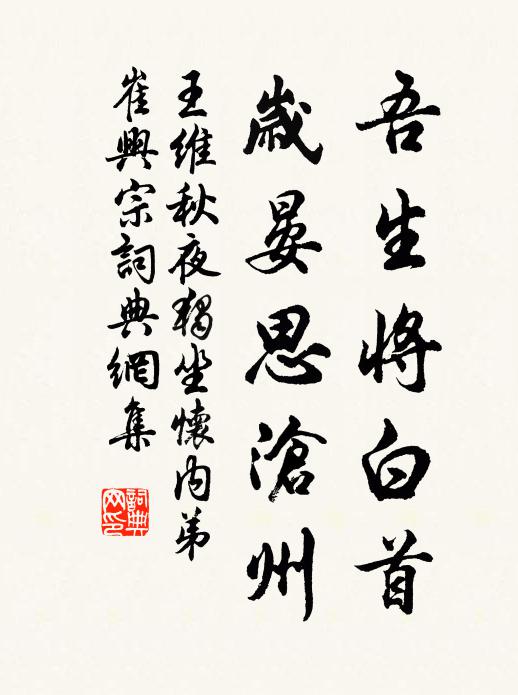 吾生將白首
歲晏思滄州
王維秋夜獨坐懷内弟
崔興宗詞典網集
詞典
网印